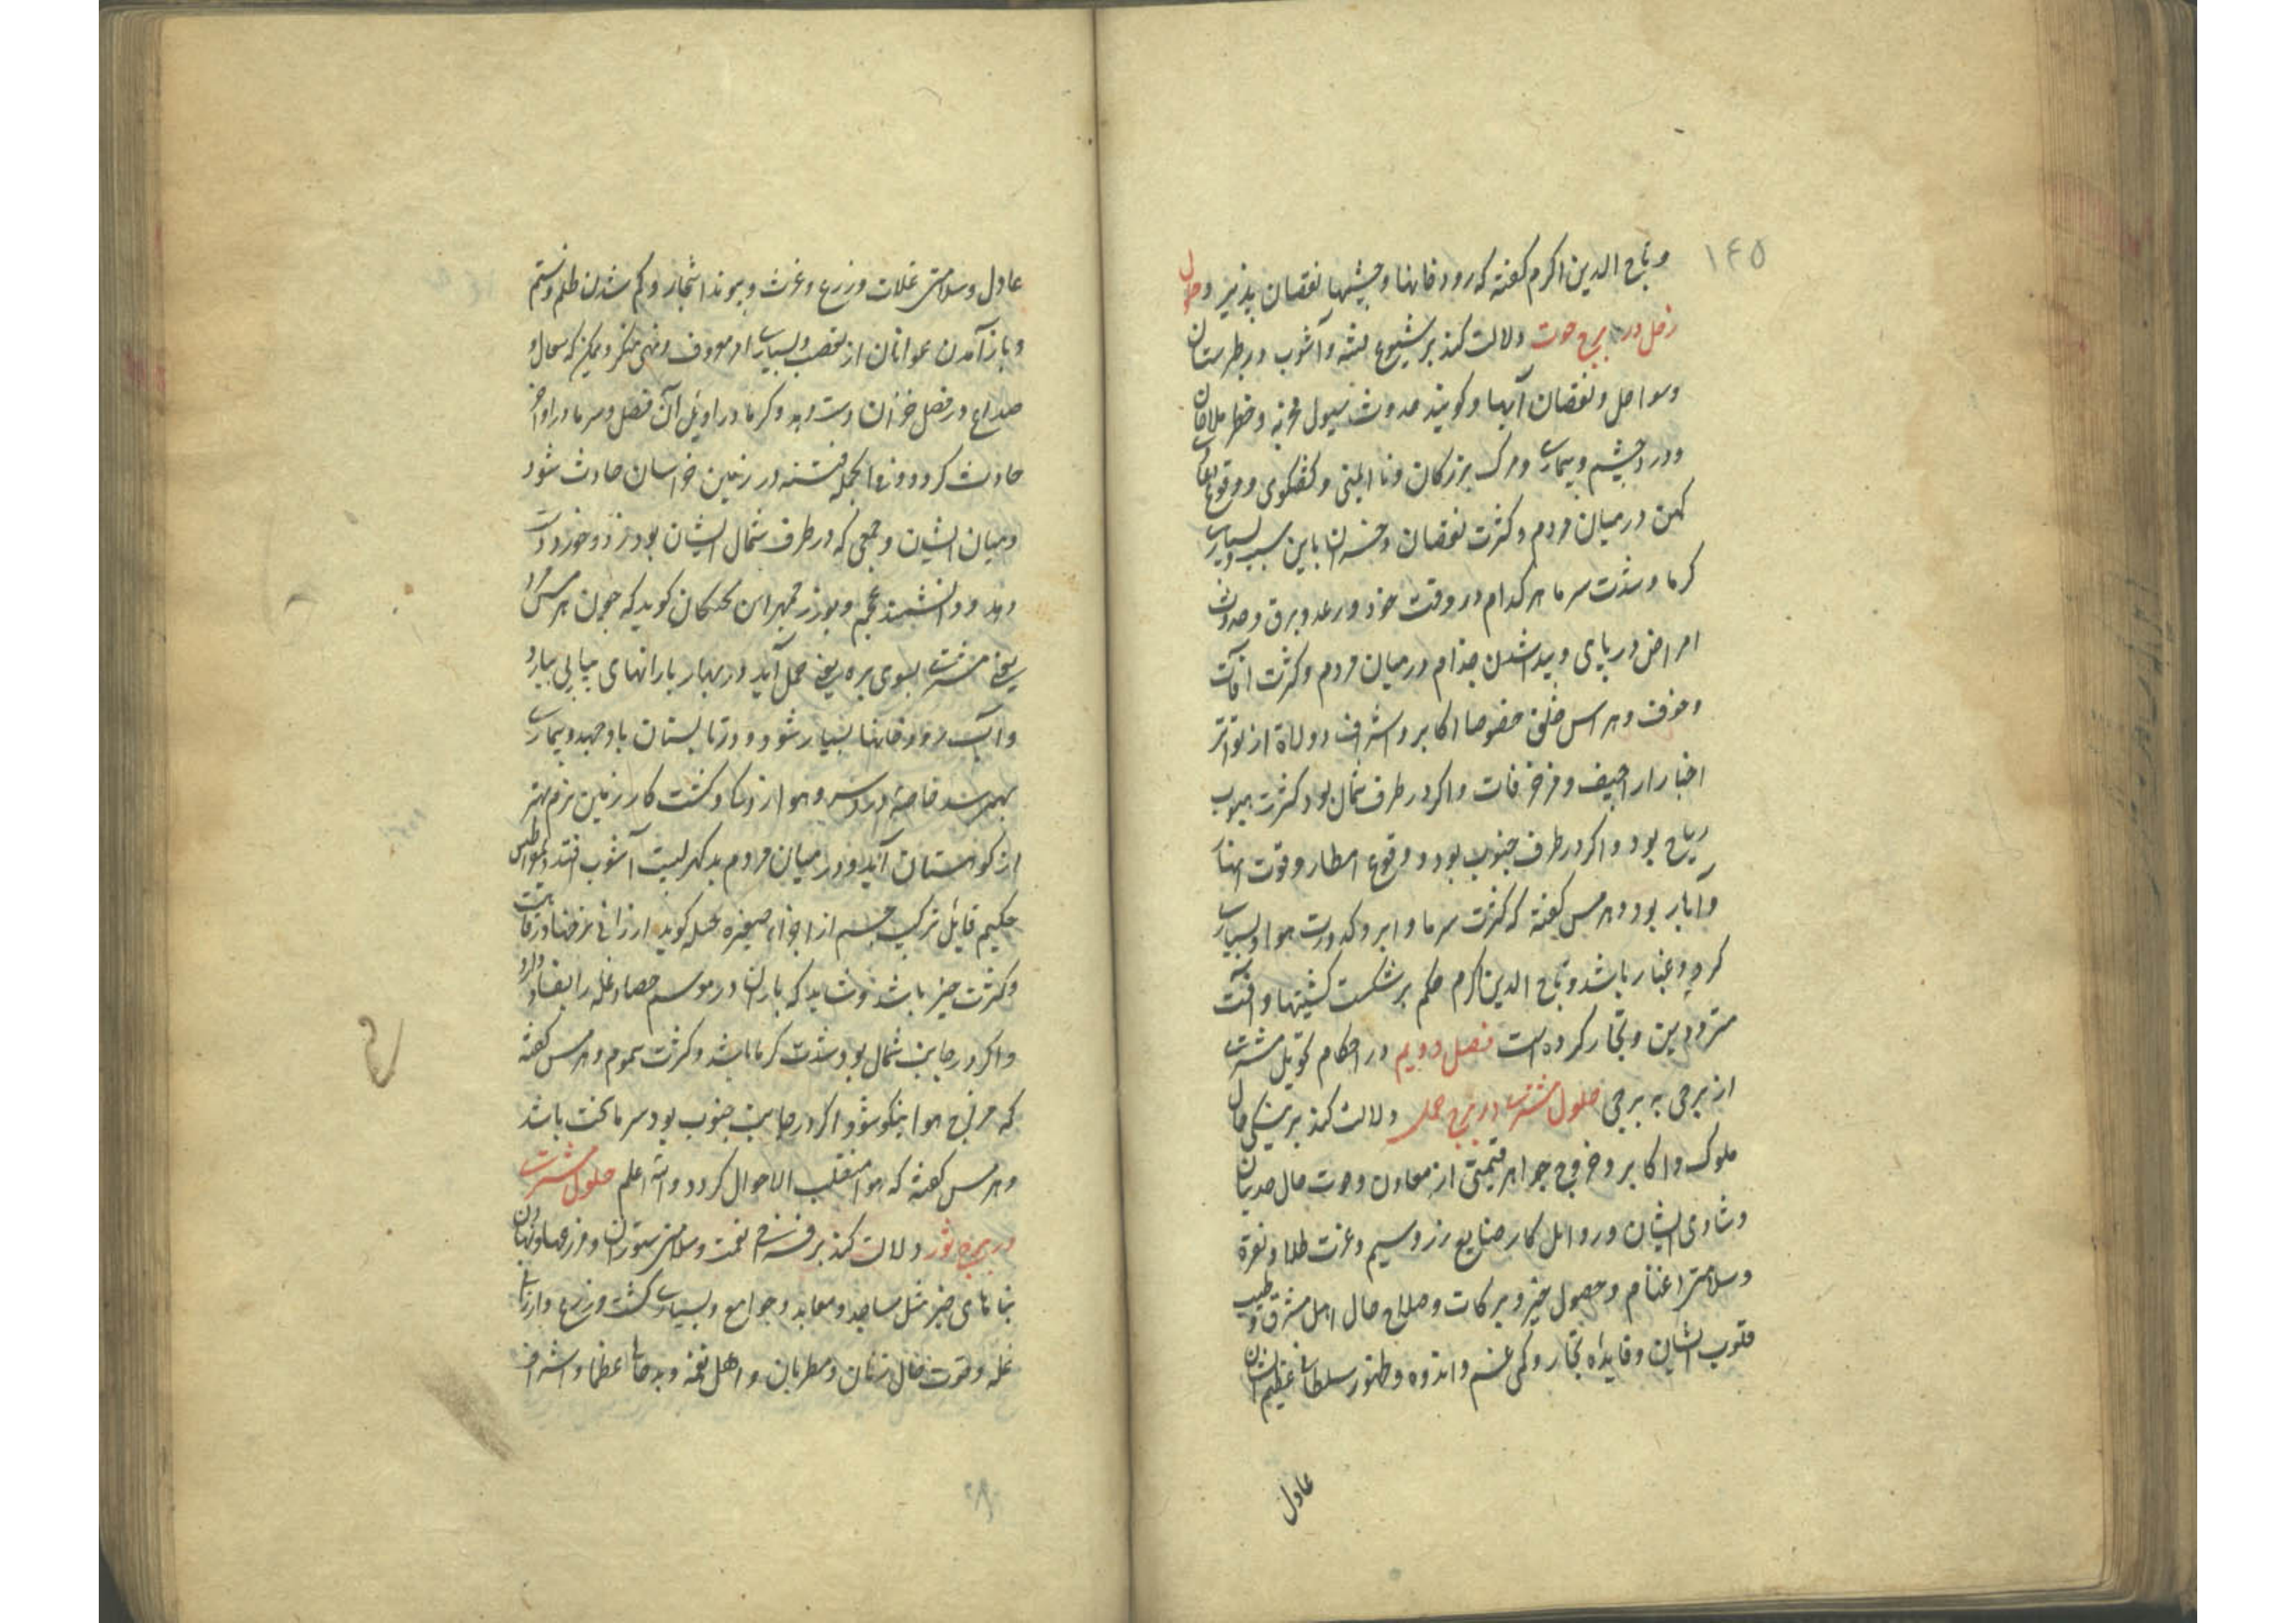 ۱۴۵
و تاج الدین اکرم گفته که رودخانها و چشمها نقصان پذیر و حلول
زحل در برج حوت دلالت کند بر شیوع فتنه و آشوب در طبرستان
و سواحل و نقصان آبها و گویند حدوث سیول مخربه و خطر ملاحان
و درد چشم و بیماری و مرگ بزرگان و ناایمنی و گفتگوی و وقوع
کهن در میان مردم و کثرت نقصان و خسران باین سبب و بسیاری
گرما و شدت سرما هر کدام در وقت خود و رعد و برق و حدوث
امراض در پای و پیدا شدن جذام در میان مردم و کثرت آفات
و خوف و هراس خلق خصوصا اکابر و اشراف و ولاة از تواتر
اخبار اراجیف و مزخرفات و اگر در طرف شمال بود کثرت هبوب
ریاح بود و اگر در طرف جنوب بود وقوع امطار و قوت انها
و آبار بود و هرمس گفته که کثرت سرما و ابر و کدورت هوا و بسیاری
گرد و غبار باشد و تاج الدین اکرم حکم بر شکست کشتیها و آفت
مترددین و تجار کرده است فصل دویم در احکام تحویل مشتری
از برجی به برجی حلول مشتری در برج حمل دلالت کند بر نیکی حال
ملوک و اکابر و خروج جواهر قیمتی از معادن و خوب حال صدیان
و شادی ایشان و رواج کار صنایع زر و سیم و عزت طلا و نقره
و سلامتی اغنام و حصول خیر و برکات و صلاح حال اهل مشرق و طیب
قلوب ایشان و فایده تجار و کمی غم و اندوه و ظهور سلطان عظیم الشان
عادل
عادل و سلامتی غلات و زرع و غرث و پیوند اشجار و کم شدن ظلم و ستم
و باز آمدن عوانان از تعصب و بسیاری امر معروف و نهی منکر و ممکن که سعال و
صداع در فصل خزان دست دهد و گرما در اوایل آن فصل و سرما در اواخر
حادث گردد و فی الجمله فتنه در زمین خراسان حادث شود
و میان ایشان و جمعی که در طرف شمال ایشان بود زد و خورد دست
دهد و دانشمند عجم بوزرجمهر ابن بختکان گوید که چون برجیس
یعنی مشتری بسوی بره یعنی حمل آید در بهار بارانهای پیاپی ببارد
و آب رودخانها بسیار شود و در تابستان باد جهد و بیماری
بهمرسد خاصه درد سر و هوا از دها و کشت کار زمین نرم بهتر
از کوهستان آید و در میان مردم بد گهر لیت آشوب افتد
حکیم قایل ترکیب جسم از اجزاء صغیره صلبه گوید ارزانی نرخها و رفاهیت
و کثرت خیر باشد و شاید که باران در موسم حصاد غله را بفساد دارد
و اگر در جانب شمال بود شدت گرما باشد و کثرت سموم و هرمس گفته
که مزاج هوا نیکو شود و اگر در جانب جنوب بود سرما سخت باشد
و هرمس گفته که هوا منقلب الاحوال گردد و الله اعلم حلول مشتری
در برج ثور دلالت کند بر فراخی نعمت و سلامتی ستوران و مزرعها و نهادن
بناهای خیر مثل مساجد و معابد و جوامع و بسیاری کشت و زرع و ارزانی
غله و قوت حال زنان و مطربان و اهل نغمه و بدحالی عظما و اشراف